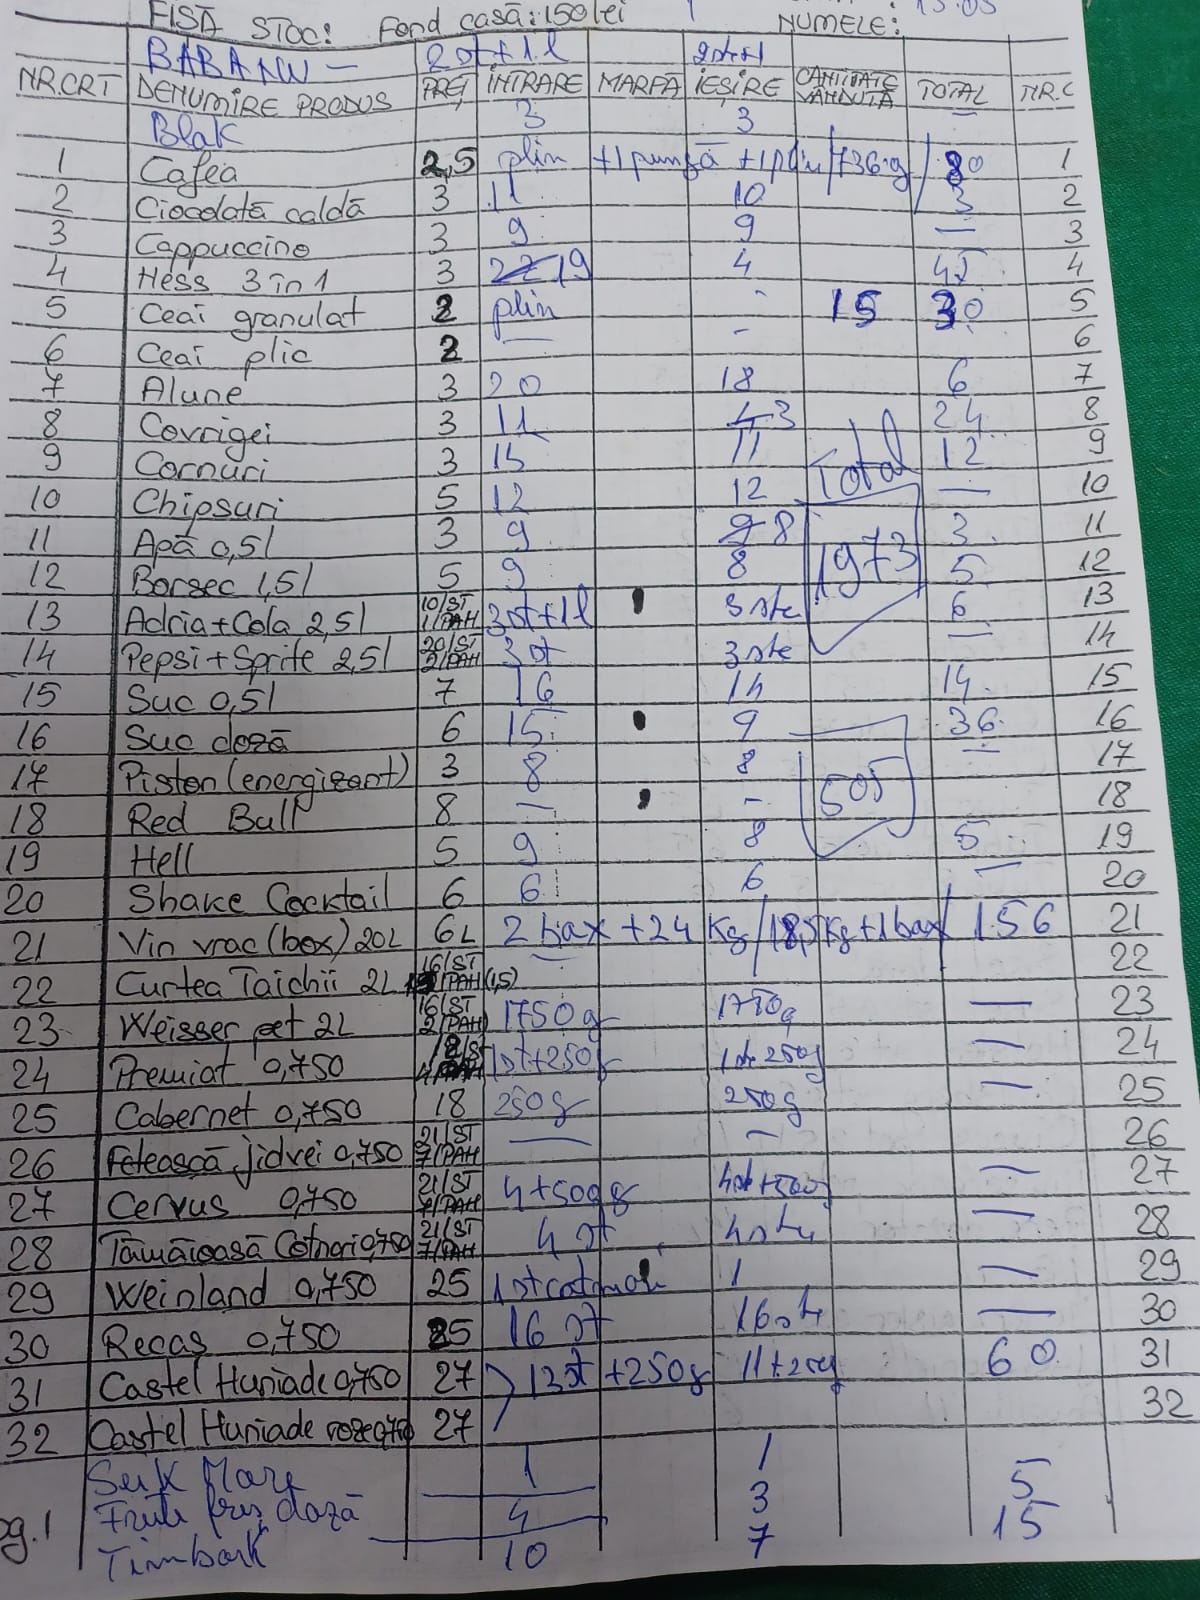 FISĂ STOC: Fond casă: 150 lei NUMELE: 15.05
BABANU – 2 st + 1 l 2 st+1
NR.CRT DENUMIRE PRODUS PREȚ INTRARE MARFĂ IEȘIRE CANTITATE VÂNDUTĂ TOTAL NR.C
Blak 3 3 —
1 Cafea 2,5 plin +1 pungă +1 plin/736g/ 80 1
2 Ciocolată caldă 3 11 10 3 2
3 Cappuccino 3 9 9 — 3
4 Hess 3 în 1 3 22 19 4 45 4
5 Ceai granulat 2 plin - 15 30 5
6 Ceai plic 2 — - 6
7 Alune 3 20 18 6 7
8 Covrigei 3 11 4 3 24 8
9 Cornuri 3 15 11 Total 12 9
10 Chipsuri 5 12 12 — 10
11 Apă 0,5l 3 9 9 8 1973 3 11
12 Borsec 1,5l 5 9 8 5 12
13 Adria+Cola 2,5l 10/ST 1/PAH 3st+1l 3 ste 6 13
14 Pepsi+Sprite 2,5l 20/ST 2/PAH 3 st 3 ste — 14
15 Suc 0,5l 7 16 14 14 15
16 Suc doză 6 15 9 36 16
17 Piston (energizant) 3 8 8 505 — 17
18 Red Bull 8 — - 18
19 Hell 5 9 8 5 19
20 Shake Cocktail 6 6 6 — 20
21 Vin vrac (box) 20L 6L 2 bax + 24 Kg/18,5Kg+1bax/ 156 21
22 Curtea Taichii 2L 16/ST /PAH (1,5) — 22
23 Weisser pet 2L 16/ST 2/PAH 1750g 1750g — 23
24 Premiat 0,750 18/ST 1st+250g 1st 250g — 24
25 Cabernet 0,750 18 250g 250g — 25
26 Fetească jidvei 0,750 21/ST 7/PAH — — 26
27 Cervus 0,750 21/ST 7/PAH 4+500g 4st+500g — 27
28 Tămâioasă Cotnari 0,750 21/ST 7/PAH 4 st 4 ste — 28
29 Weinland 0,750 25 1 st 1 — 29
30 Recaș 0,750 25 16 st 16 ste — 30
31 Castel Huniade 0,750 27 13 st +250g 11+250g 60 31
32 Castel Huniade roze 0,750 27 32
Seik Mare 1 1
Frute fres doză 4 3 5
pg.1 Timbark 10 7 15